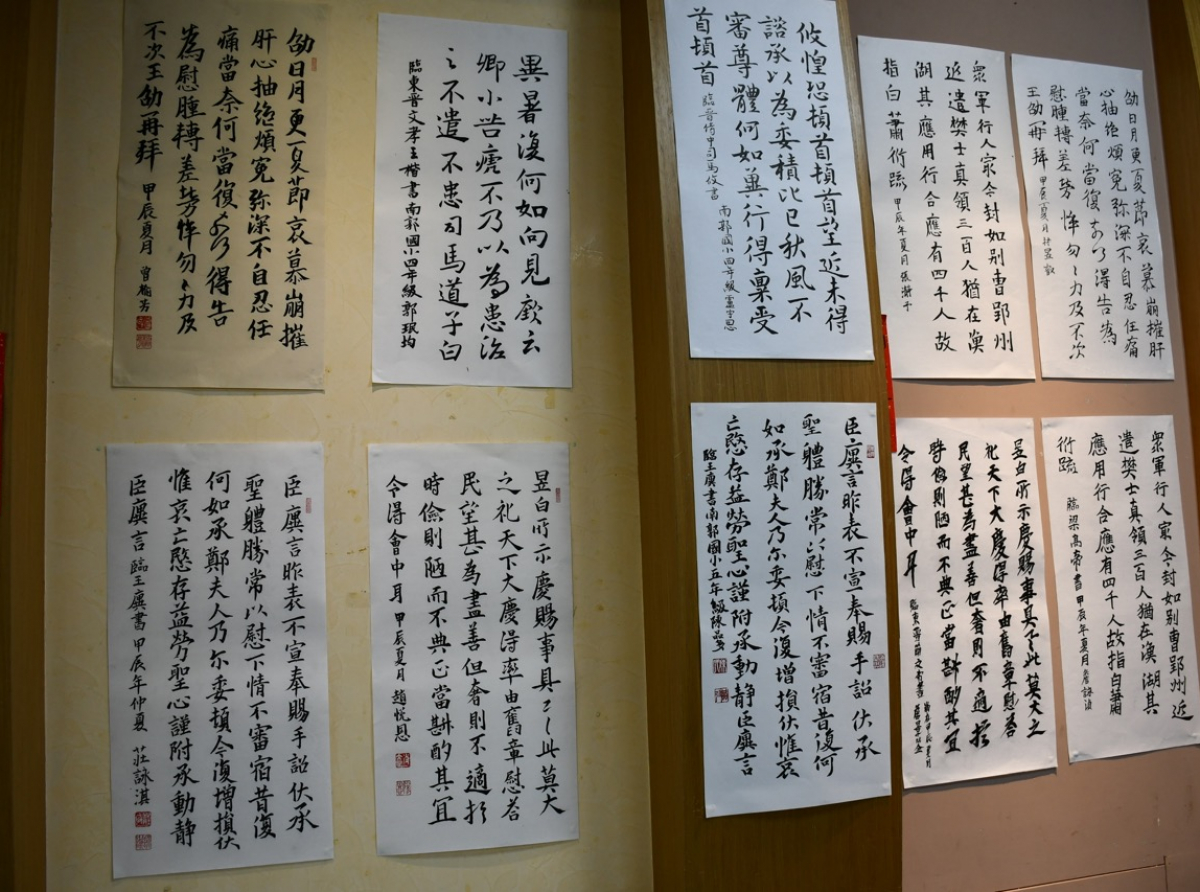 劭日月更夏節哀慕崩摧
肝心抽絕煩冤弥深不自忍任
痛當奈何當復奈何得告
為慰腫轉差勞悴勿勿力及
不次王劭再拜 甲辰夏月
異暑復何如向見厥云
卿小苦瘧不乃以為患治
之不遣不忠司馬道子白
臨東晉文孝王楷書南郭國小四年級郭珉均
攸惶恐頓首頓首望近未得
諮承以為委積比已秋風不
審尊體何如冀行得稟受
首頓首 臨晉侍中司馬攸書 南郭國小四年級
眾軍行人家令封如別曹郢州
近遣樊士真領三百人猶在漢
湖其應用行合應有四千人故
指白蕭衍疏 甲辰年夏月
劭日月更夏節哀慕崩摧肝
心抽絕煩冤弥深不自忍任痛
當奈何當復奈何得告為
慰腫轉差勞悴勿勿力及不次
王劭再拜
臣廙言昨表不宣奉賜手詔伏承
聖體勝常以慰下情不審宿昔復
何如承鄭夫人乃尔委頓令復增損伏
惟哀亡愍存益勞聖心謹附承動靜
臣廙言臨王廙書 甲辰年仲夏 莊詠淇
昱白所示慶賜事具之此莫大
之祀天下大慶得率由舊章慰荅
民望甚為盡善但奢則不適於
時儉則陋而不典正當斟酌其宜
今得會中 昱 甲辰夏月 趙悅恩
臣廙言昨表不宣奉賜手詔伏承
聖體勝常以慰下情不審宿昔復何
如承鄭夫人乃尔委頓令復增損伏惟哀
亡愍存益勞聖心謹附承動靜臣廙言
臨王廙書南郭國小五年級陳品
昱白所示慶賜事具之此莫大之
祀天下大慶得率由舊章慰荅
民望甚為盡善但奢則不適於
時儉則陋而不典正當斟酌其宜
今得會中
眾軍行人家令封如別曹郢州近
遣樊士真領三百人猶在漢湖其
應用行合應有四千人故指白蕭
衍疏 臨梁高帝書 甲辰年夏月